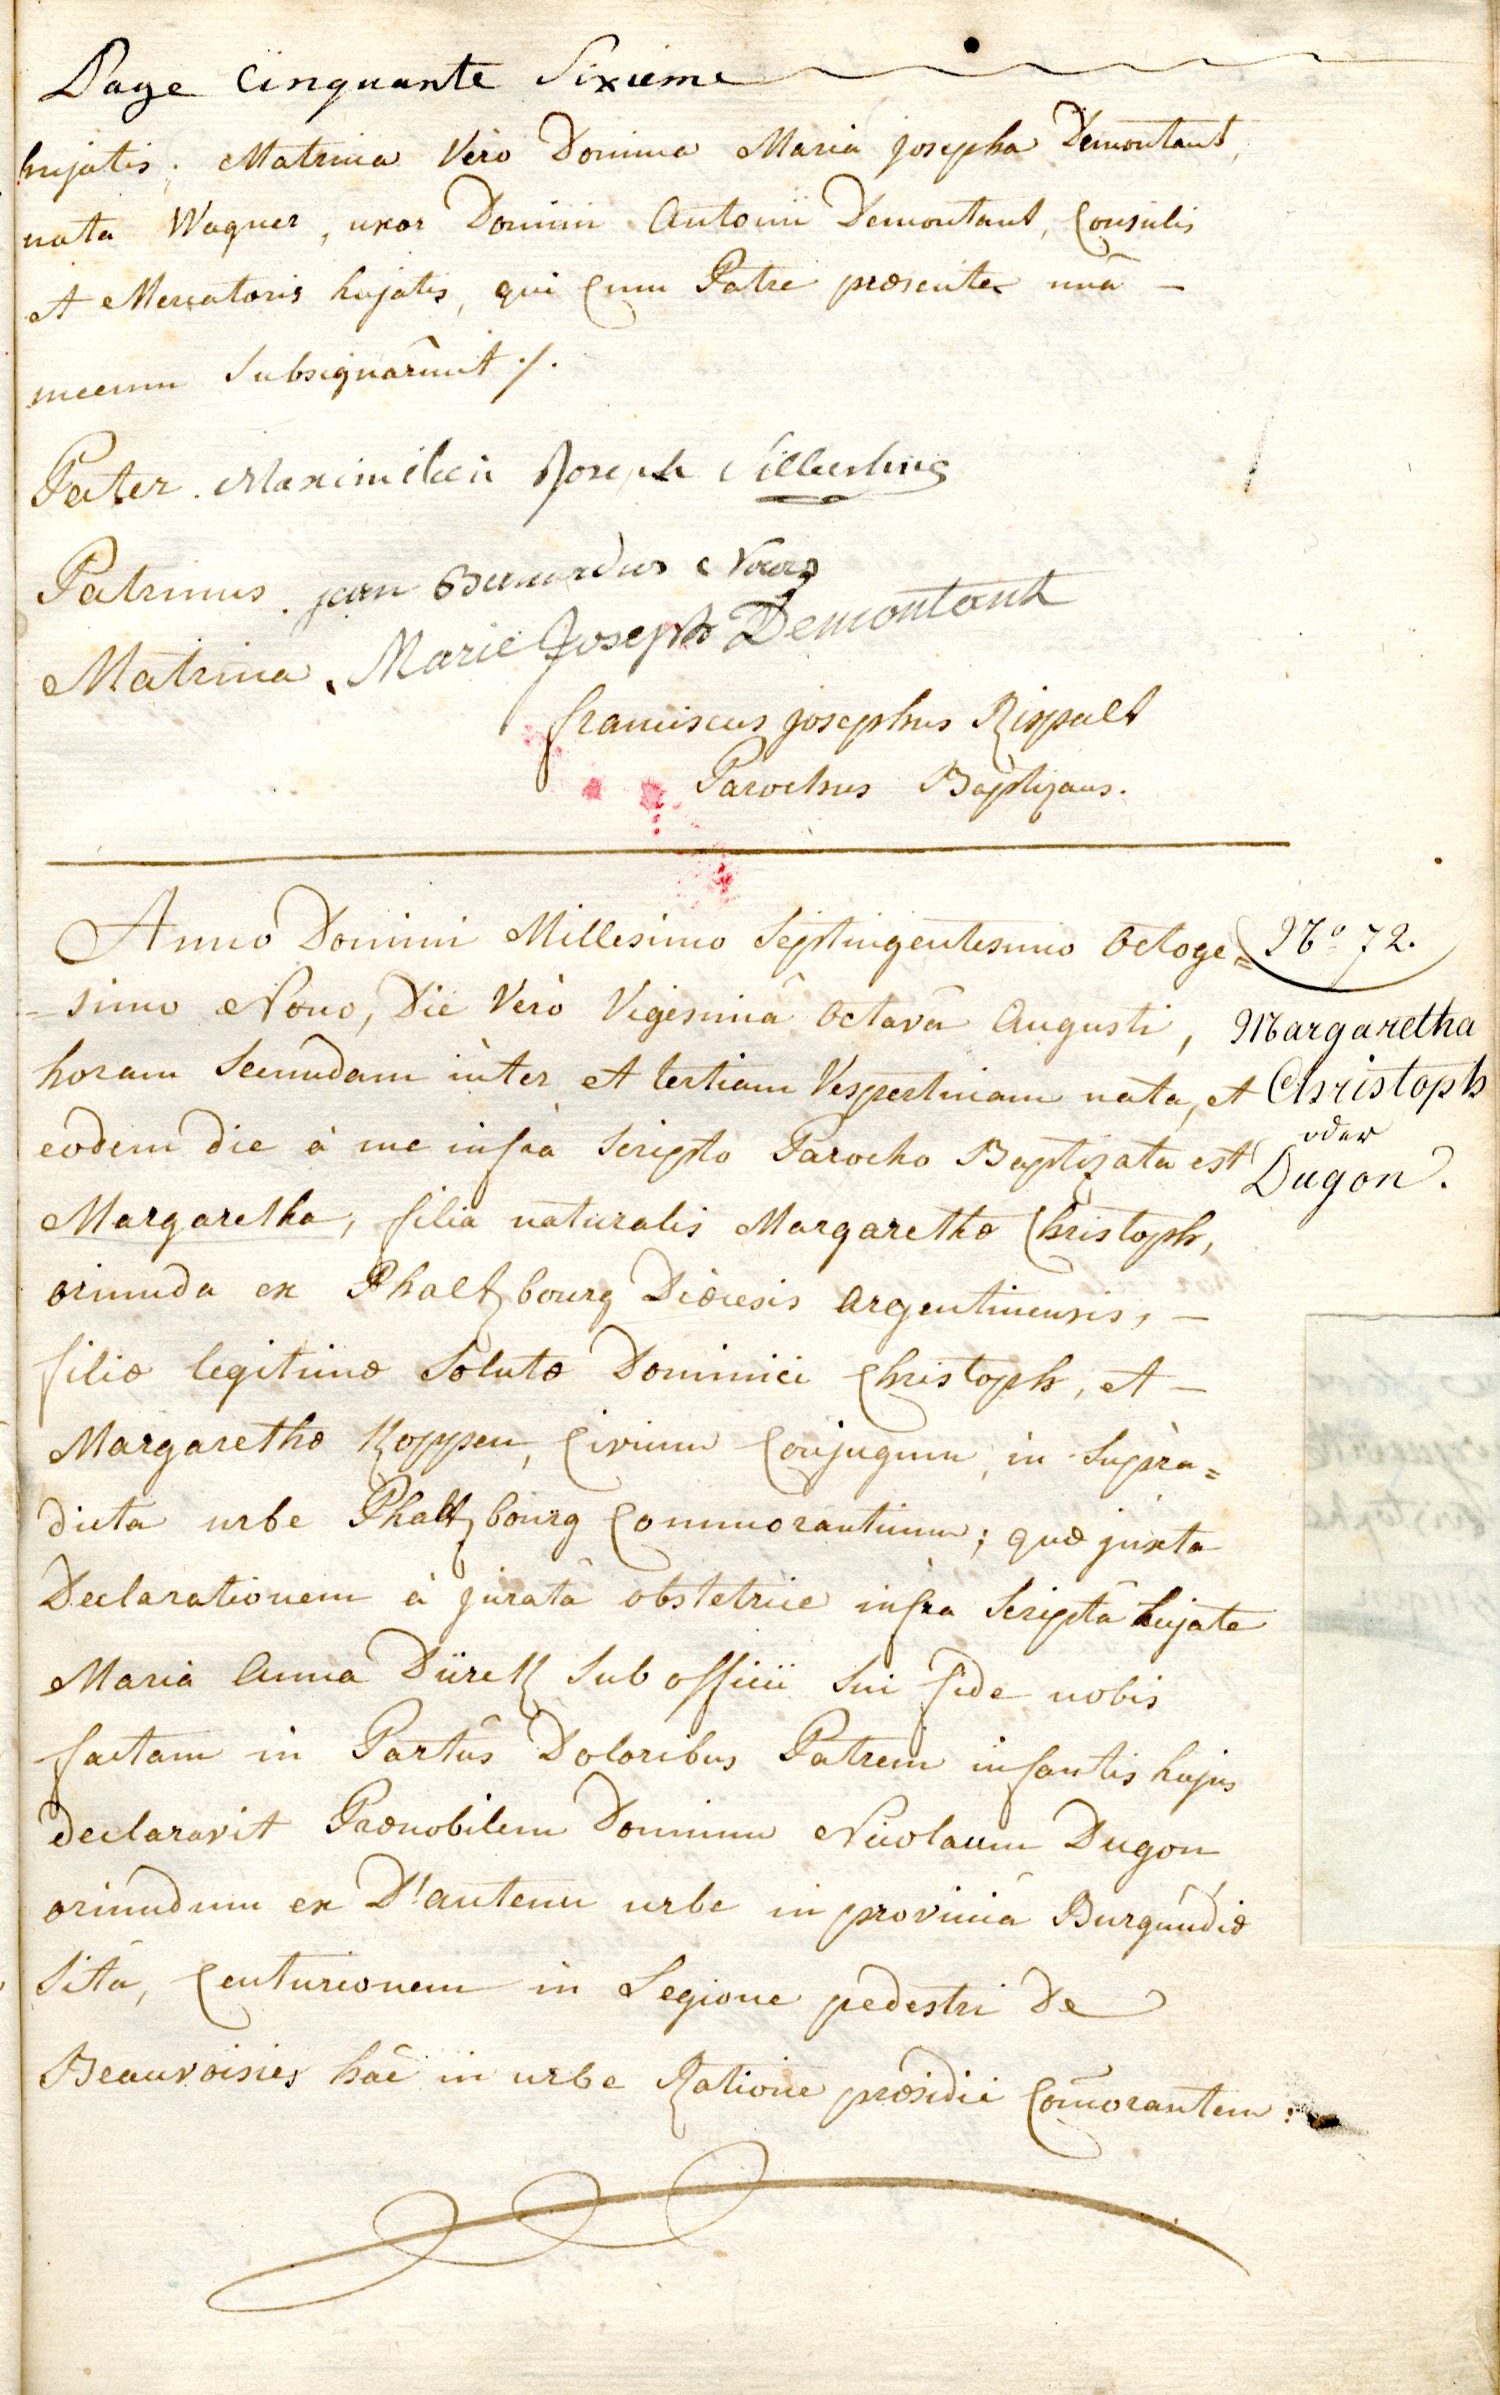 Page Cinquante Sixieme
hujatis; Matrina Verò Domina Maria josepha Demontant,
nata Wagner, uxor Domini Antonii Demontant, Consulis
et Mercatoris hujatis, qui Cum Patre præsente unà —
mecum Subsignârunt ./.
Pater. Maximilian Joseph Silberling
Patrinus. jean Bernardus
Matrina. Marie Joseph Demontant
franciscus josephus Rispalt
Parochus Baptizans.
Anno Domini Millesimo Septingentesimo Octoge=
=simo Nono, Die Verò Vigesimâ Octavâ Augusti,
horam Secundam inter et tertiam Vespertinam nata, et
eodem die à me infrà Scripto Parocho Baptizata est
Margaretha, filia naturalis Margarethæ Christoph,
oriunda ex Phaltzbourg Diœcesis Argentinensis, —
filiæ legitimæ Solutæ Dominici Christoph, et —
Margarethæ Koppen, Civium Conjugum, in Suprà=
dicta urbe Phaltzbourg Commorantium; quæ juxta
Declarationem à juratâ obstetrice infra Scriptâ hujate
Maria Anna Dürck Sub officii Sui fide nobis
factam in Partûs Doloribus Patrem infantis hujus
declaravit Prænobilem Dominum Nicolaum Dugon
oriundum ex D'autenu urbe in provinciâ Burgundiæ
Sitâ, Centurionem in Legione pedestri de
Beauvoisies hâc in urbe Ratione præsidii Com̄orantem:
Nº 72.
Margaretha
Christoph
oder
Dugon.